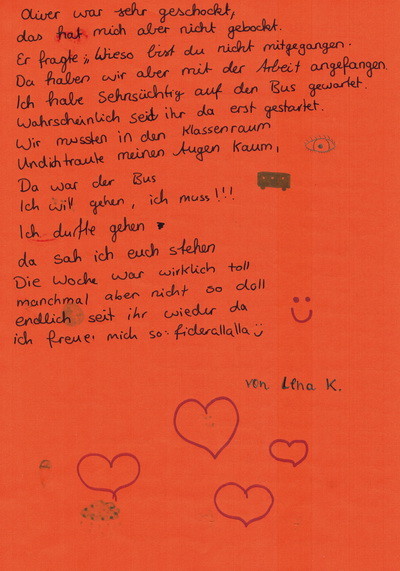 Oliver war sehr geschockt,
das hat mich aber nicht gebockt.
Er fragte „Wieso bist du nicht mitgegangen.
Da haben wir aber mit der Arbeit angefangen.
Ich habe Sehnsüchtig auf den Bus gewartet.
Wahrscheinlich seid ihr da erst gestartet.
Wir mussten in den Klassenraum
Und ich traute meinen Augen kaum,
Da war der Bus
Ich will gehen, ich muss!!!
Ich durfte gehen
da sah ich euch stehen
Die Woche war wirklich toll
manchmal aber nicht so doll
endlich seit ihr wieder da
ich freue mich so: fiderallalla
von Lena K.